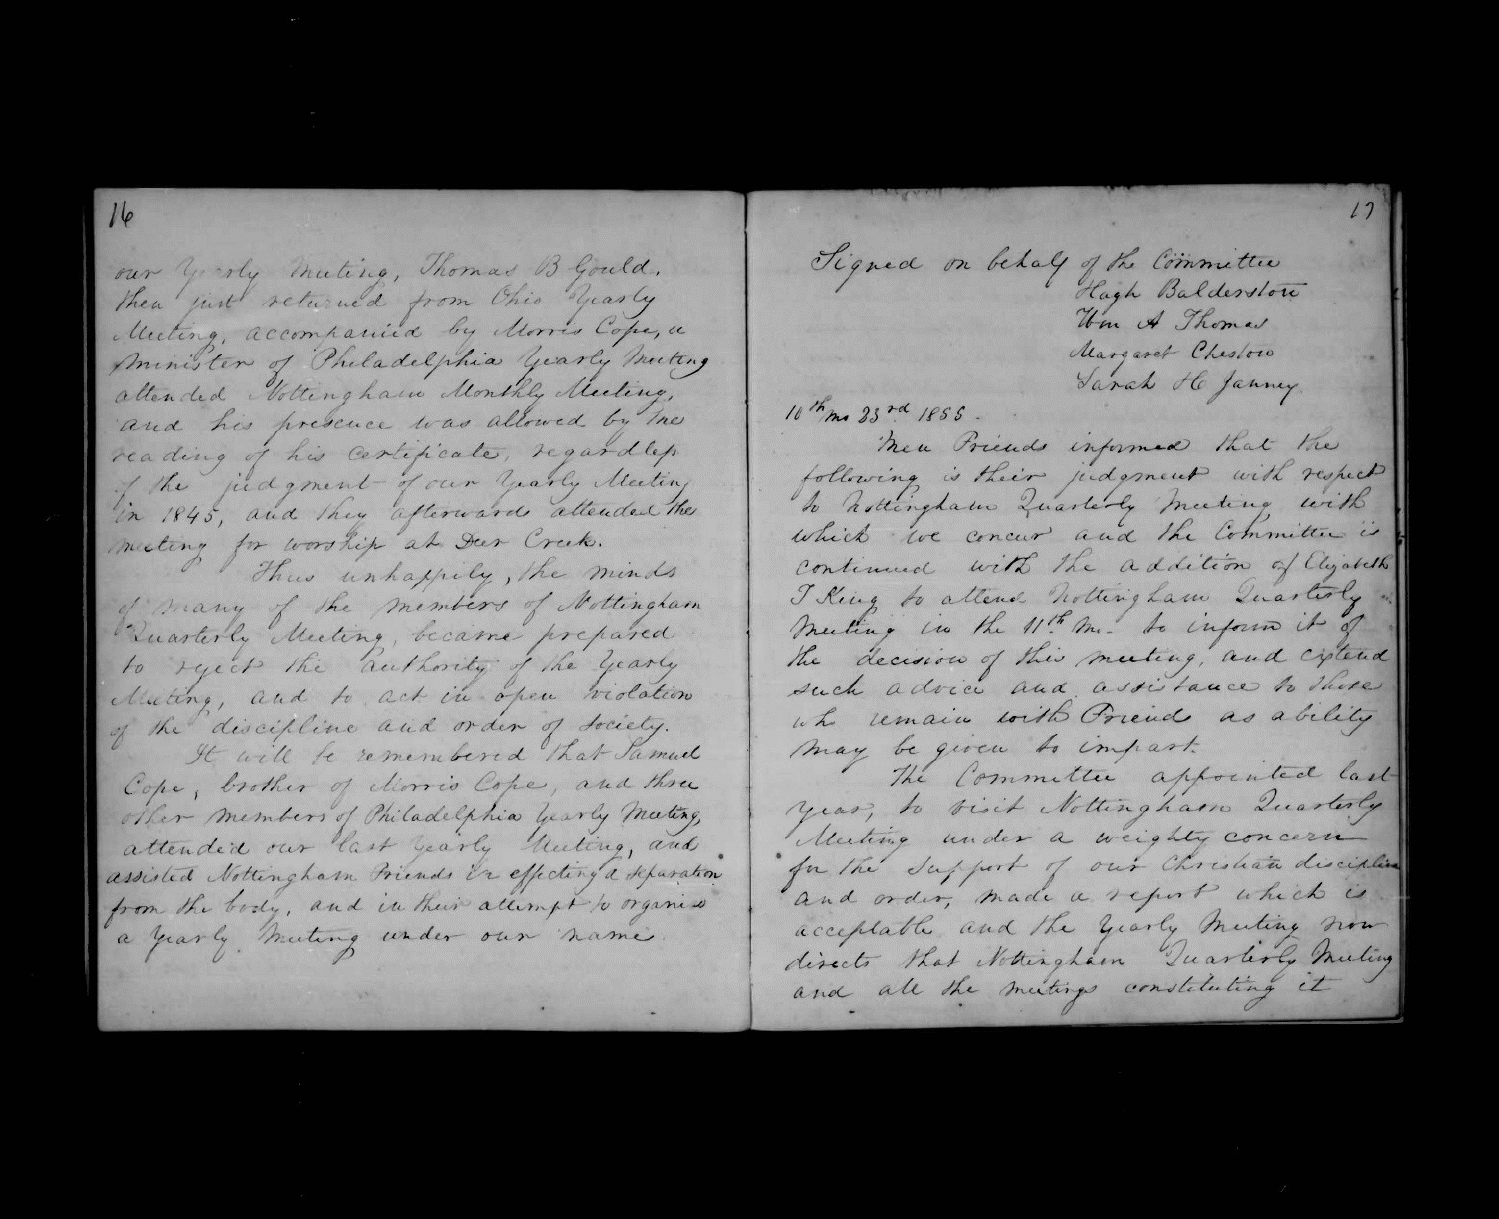 16
our Yearly Meeting, Thomas B Gould,
then just returned from Ohio Yearly
Meeting, accompanied by Morris Cope, a
minister of Philadelphia Yearly Meeting
attended Nottingham Monthly Meeting,
and his presence was allowed by the
reading of his certificate, regardless
of the judgment of our Yearly Meeting
in 1845, and they afterwards attended the
meeting for worship at Deer Creek.
Thus unhappily, the minds
of many of the members of Nottingham
Quarterly Meeting, became prepared
to reject the authority of the Yearly
Meeting, and to act in open violation
of the discipline and order of Society.
It will be remembered that Samuel
Cope, brother of Morris Cope, and three
other members of Philadelphia Yearly Meeting,
attended our last Yearly Meeting, and
assisted Nottingham Friends in effecting a separation
from the body, and in their attempt to organise
a Yearly Meeting under our name
17
Signed on behalf of the Committee
Hugh Balderston
Wm A Thomas
Margaret Cheston
Sarah H Janney
10th mo 23rd 1855.
Men Friends informed that the
following is their judgment with respect
to Nottingham Quarterly Meeting with
which we concur and the Committee is
continued with the addition of Elizabeth
T King to attend Nottingham Quarterly
Meeting in the 11th Mo. to inform it of
the decision of this meeting, and extend
such advice and assistance to those
wh remain with Friends as ability
may be given to impart.
The Committee appointed last
year, to visit Nottingham Quarterly
Meeting under a weighty concern
for the support of our Christian discipline
and order, made a report which is
acceptable and the Yearly Meeting now
directs that Nottingham Quarterly Meeting
and all the meetings constituting it